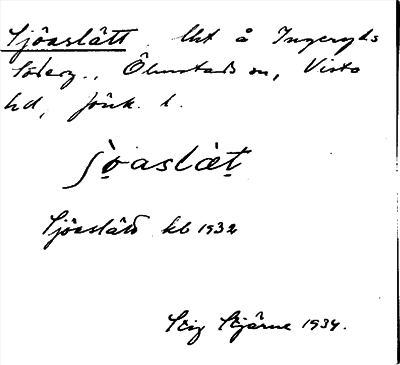 Sjöaslätt, lht å Ingeryds
Söderg., Ölmstads sn, Vista
hd, Jönk. l.
ʃòaslæ̀t
Sjöaslätt kb 1932
Stig Stjärne 1934.